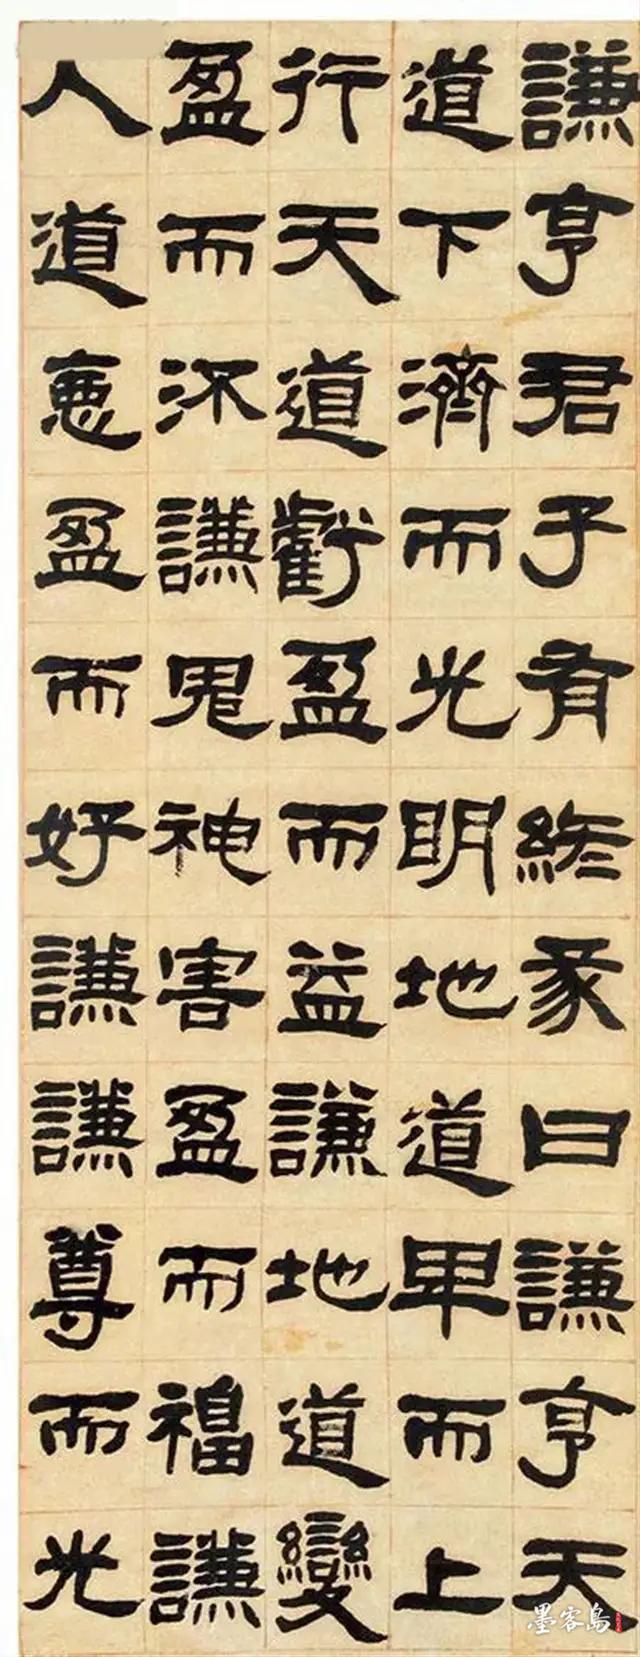 謙亨君子有終彖曰謙亨天
道下濟而光明地道卑而上
行天道虧盈而益謙地道變
盈而流謙鬼神害盈而福謙
人道惡盈而好謙謙尊而光
墨客島